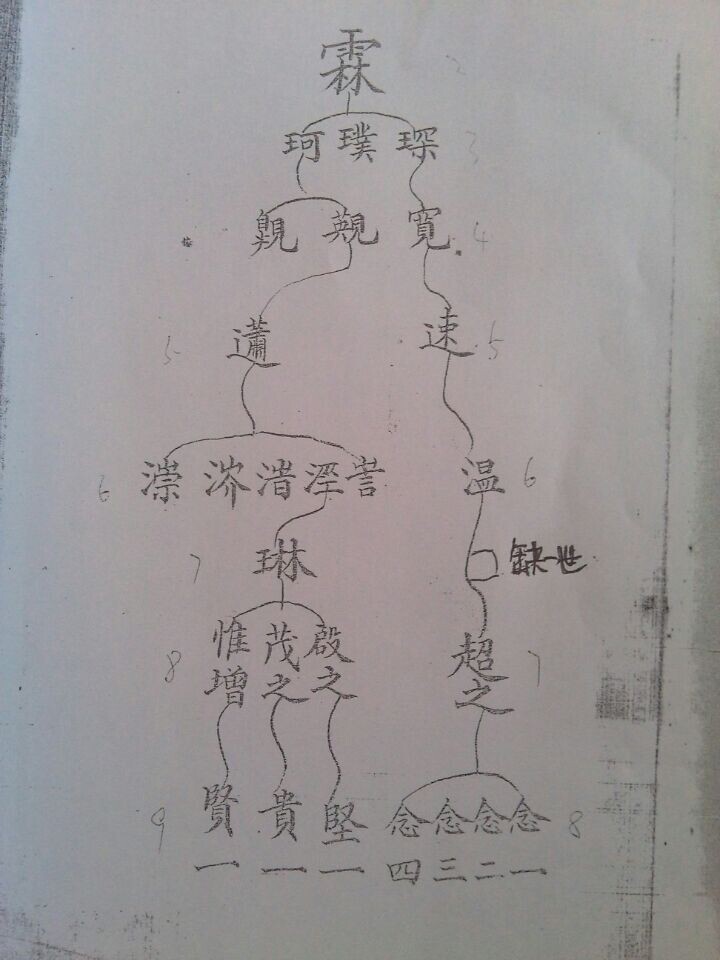 霖 2
珂 璞 琛 3
覭 覢 寬 4
5 薖 速 5
6 漴 㳕 渚 溼 萻 温 6
7 琳 缺一世
8 惟增 茂之 啟之 超之 7
9 賢一 貴一 堅一 念四 念三 念二 念一 8